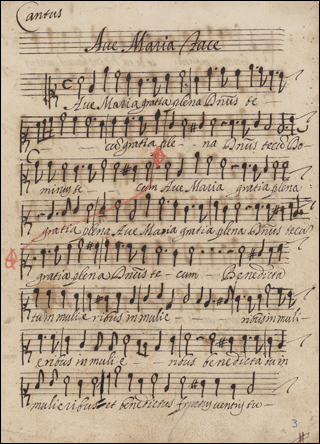 Cantus
Ave Maria Face
Ave Maria gratia plena Dnus te-
- - cū gratia ple - na Dnus tecū Do-
minus te - cum Ave Maria gratia plena
gratia plena Ave Maria gratia plena Dnus tecū
gratia plena Dnus te - cum - Benedicta
tu in mulieribus in mulie - - ribus in muli-
eribus in mulie - ribus benedicta tu in
mulieribus et benedictus fructus ventris tu-
3